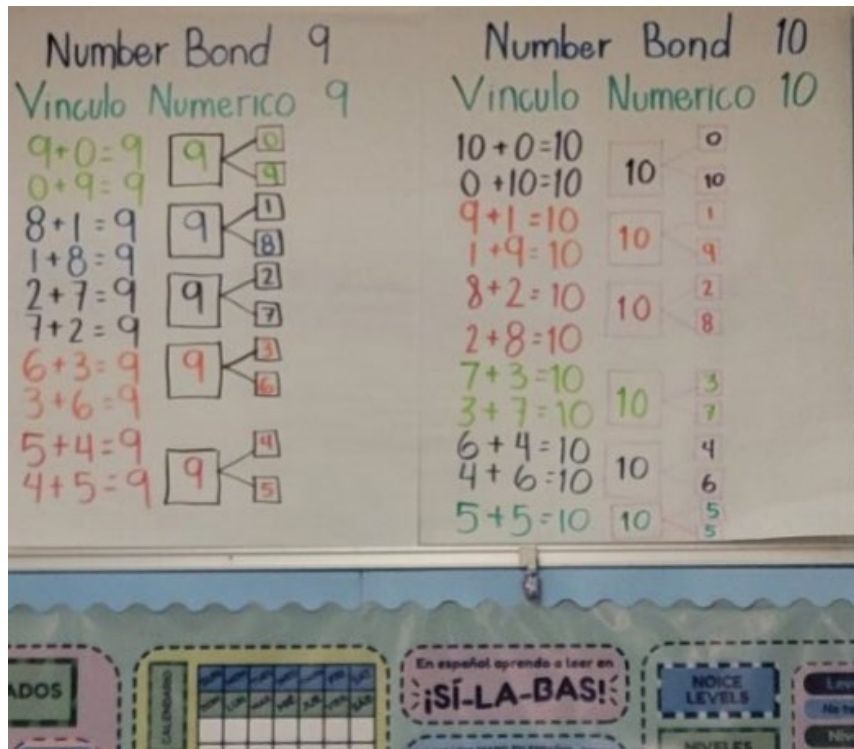 Number Bond 9
Vinculo Numerico 9
9+0=9
0+9=9
9
0
9
8+1=9
1+8=9
9
1
8
2+7=9
7+2=9
9
2
7
6+3=9
3+6=9
9
3
6
5+4=9
4+5=9
9
4
5
Number Bond 10
Vinculo Numerico 10
10+0=10
0+10=10
10
0
10
9+1=10
1+9=10
10
1
9
8+2=10
2+8=10
10
2
8
7+3=10
3+7=10
10
3
7
6+4=10
4+6=10
10
4
6
5+5=10
10
5
5
ADOS
CALENDARIO
En español aprendo a leer en
¡SÍ-LA-BAS!
NOICE
LEVELS